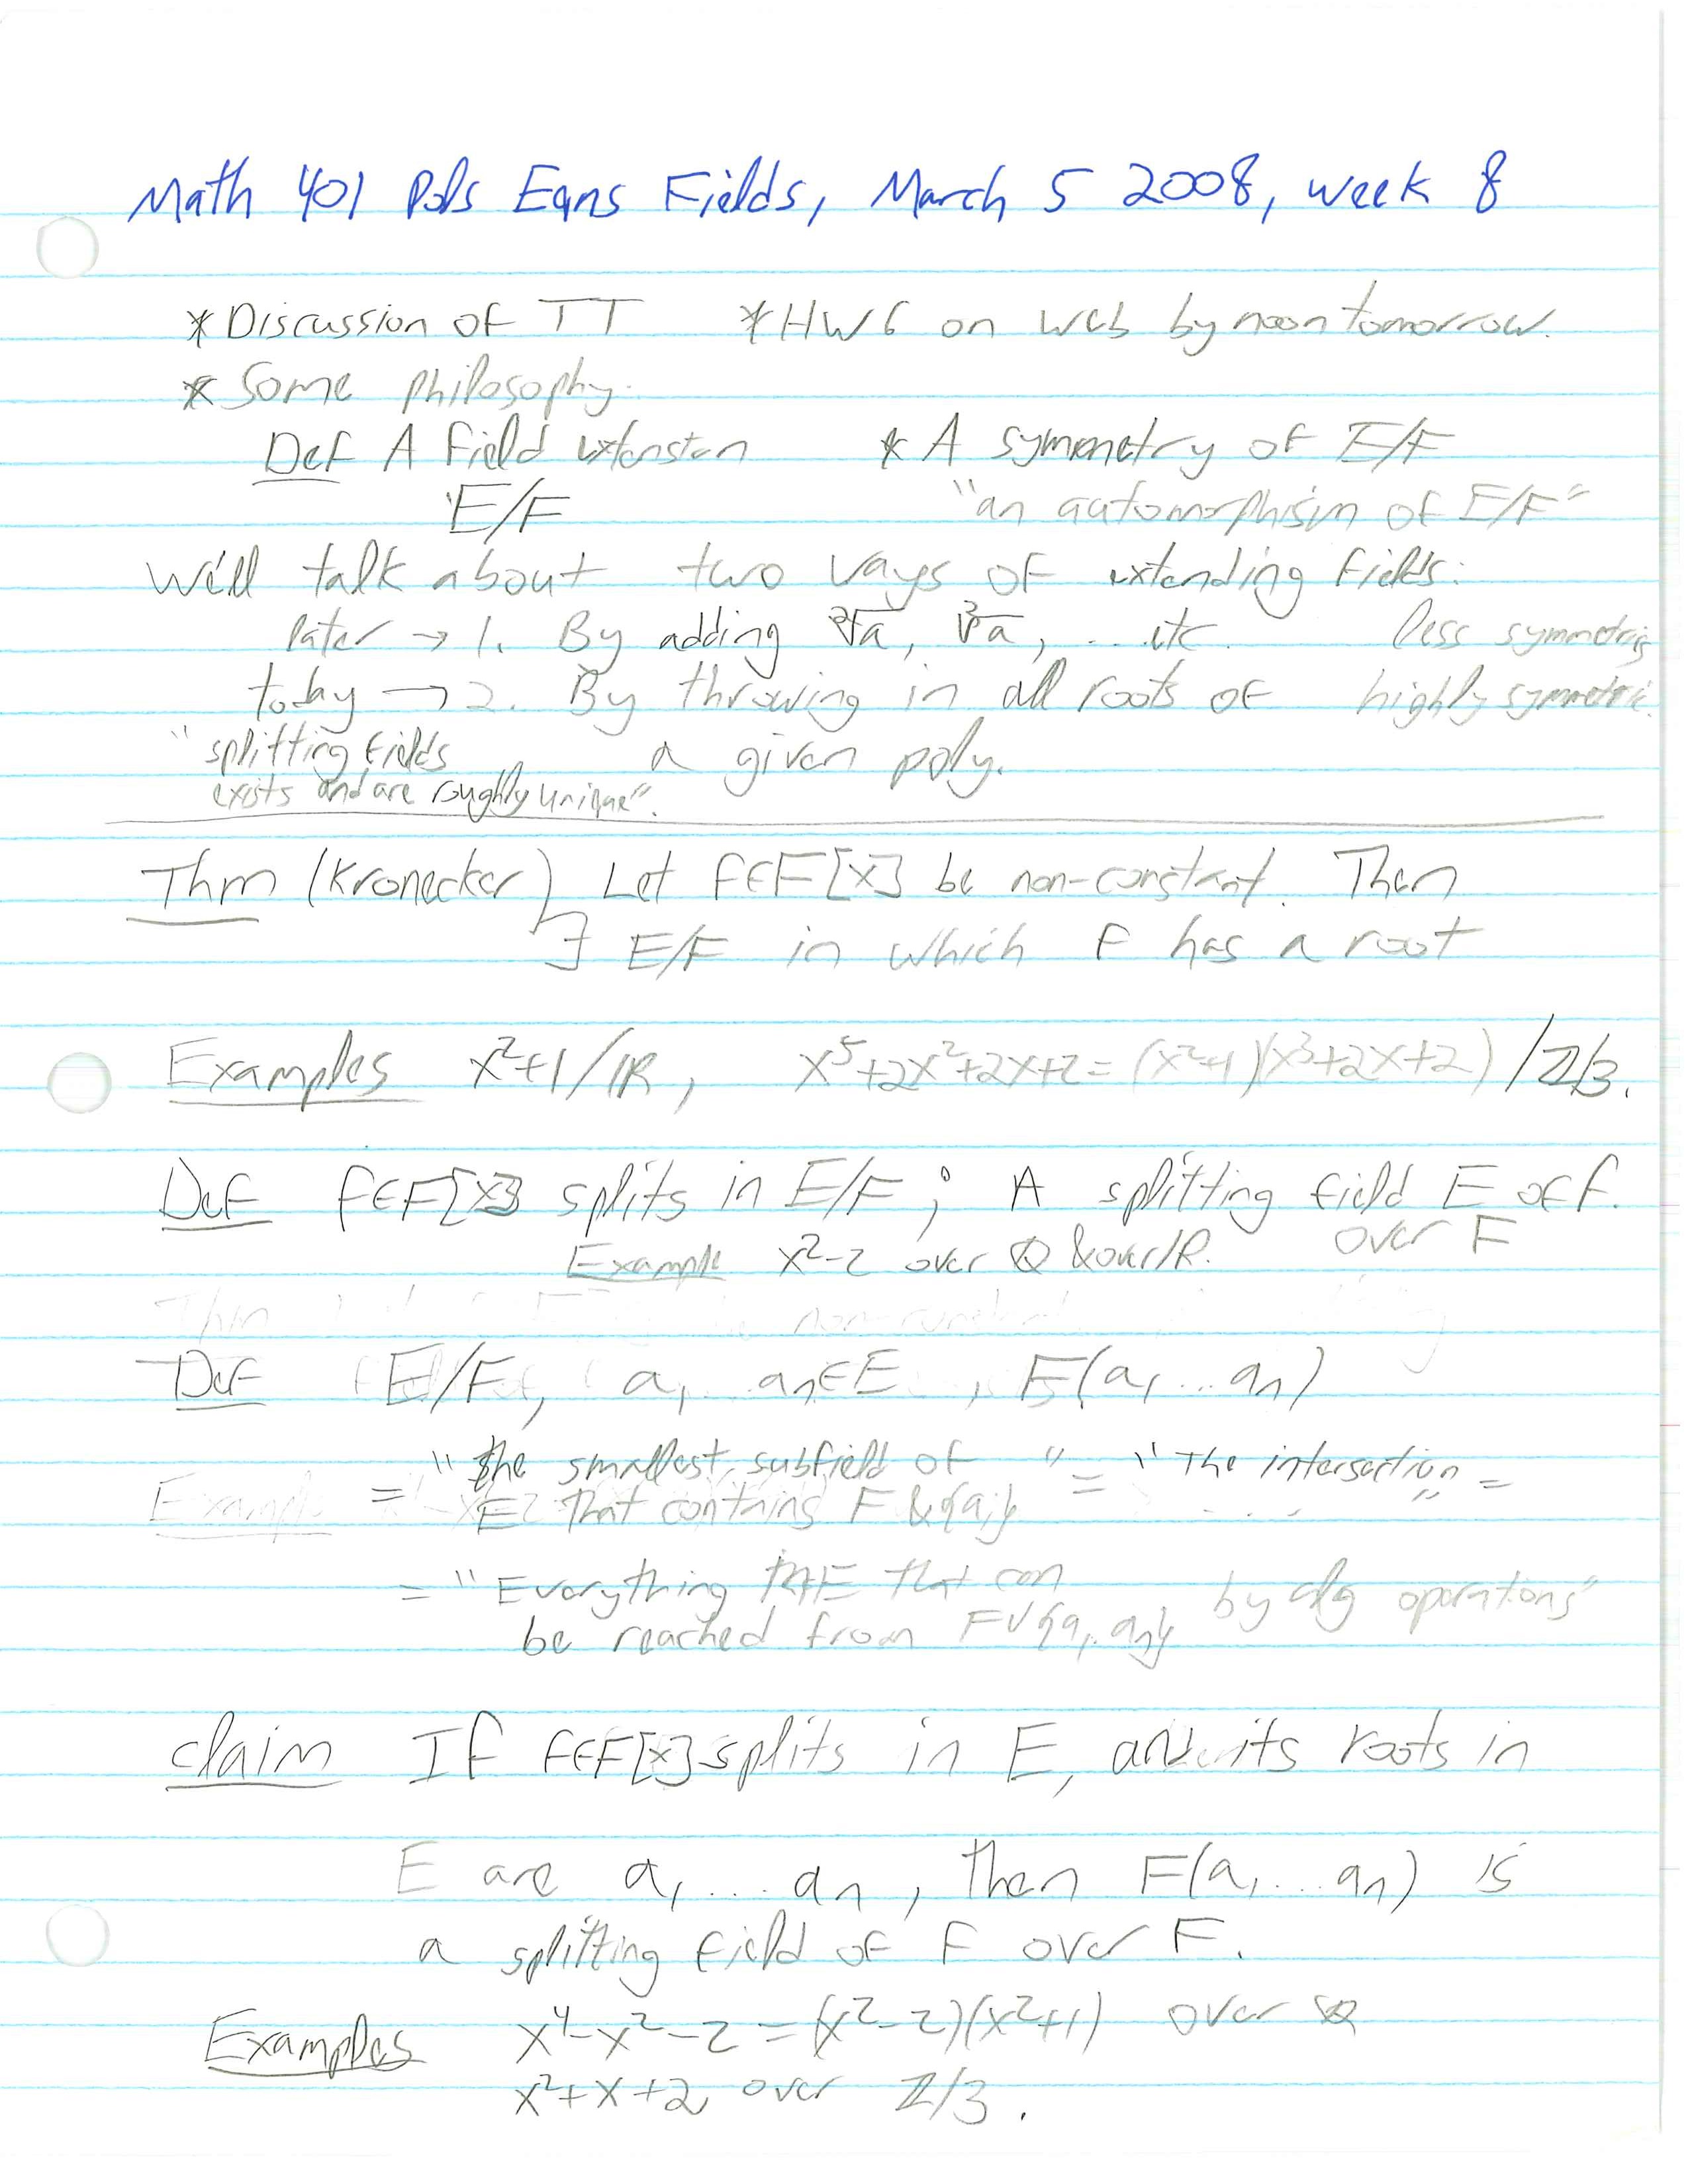 Math 401 Pols Eqns Fields, March 5 2008, week 8
*Discussion of TT *HW6 on web by noon tomorrow.
* Some philosophy.
Def A field extension * A symmetry of E/F
E/F "an automorphism of E/F"
We'll talk about two ways of extending fields:
later → 1. By adding ²√a, ³√a, ... etc less symmetric
today → 2. By throwing in all roots of highly symmetric.
"splitting fields a given poly.
exists and are roughly unique".
Thm (Kronecker) Let f∈F[x] be non-constant. Then
∃ E/F in which f has a root
Examples x²+1/ℝ, x⁵+2x²+2x+2=(x²+1)(x³+2x+2) /ℤ/3.
Def f∈F[x] splits in E/F; A splitting field E of f.
Example x²-2 over ℚ & over ℝ. over F
Thm non-constant
Def E/F, a₁...aₙ∈E, F(a₁...aₙ)
= "the smallest subfield of " = "The intersection =
Example E that contains F & {aᵢ} ... "
= "Everything in E that can by alg operations"
be reached from F∪{a₁..aₙ}
claim If f∈F[x] splits in E, and its roots in
E are a₁...aₙ, then F(a₁...aₙ) is
a splitting field of f over F.
Examples x⁴-x²-2=(x²-2)(x²+1) over ℚ
x²+x+2 over ℤ/3.